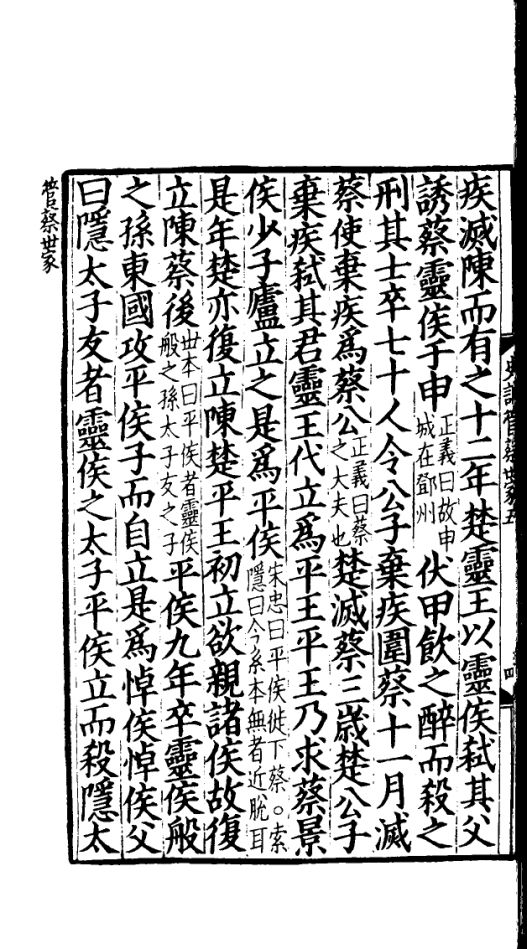 疾滅陳而有之十二年楚靈王以靈侯弑其父
誘蔡靈侯于申正義曰故申城在鄧州伏甲飲之醉而殺之
刑其士卒七十人令公子棄疾圍蔡十一月滅
蔡使棄疾爲蔡公正義曰蔡之大夫也楚滅蔡三歲楚公子
棄疾弑其君靈王代立爲平王平王乃求蔡景
侯少子廬立之是爲平侯宋忠曰平侯徙下蔡。索隱曰今系本無者近脫耳
是年楚亦復立陳楚平王初立欲親諸侯故復
立陳蔡後丗本曰平侯者靈侯般之孫太子友之子平侯九年卒靈侯般
之孫東國攻平侯子而自立是爲悼侯悼侯父
曰隱太子友者靈侯之太子平侯立而殺隱太
管蔡世家